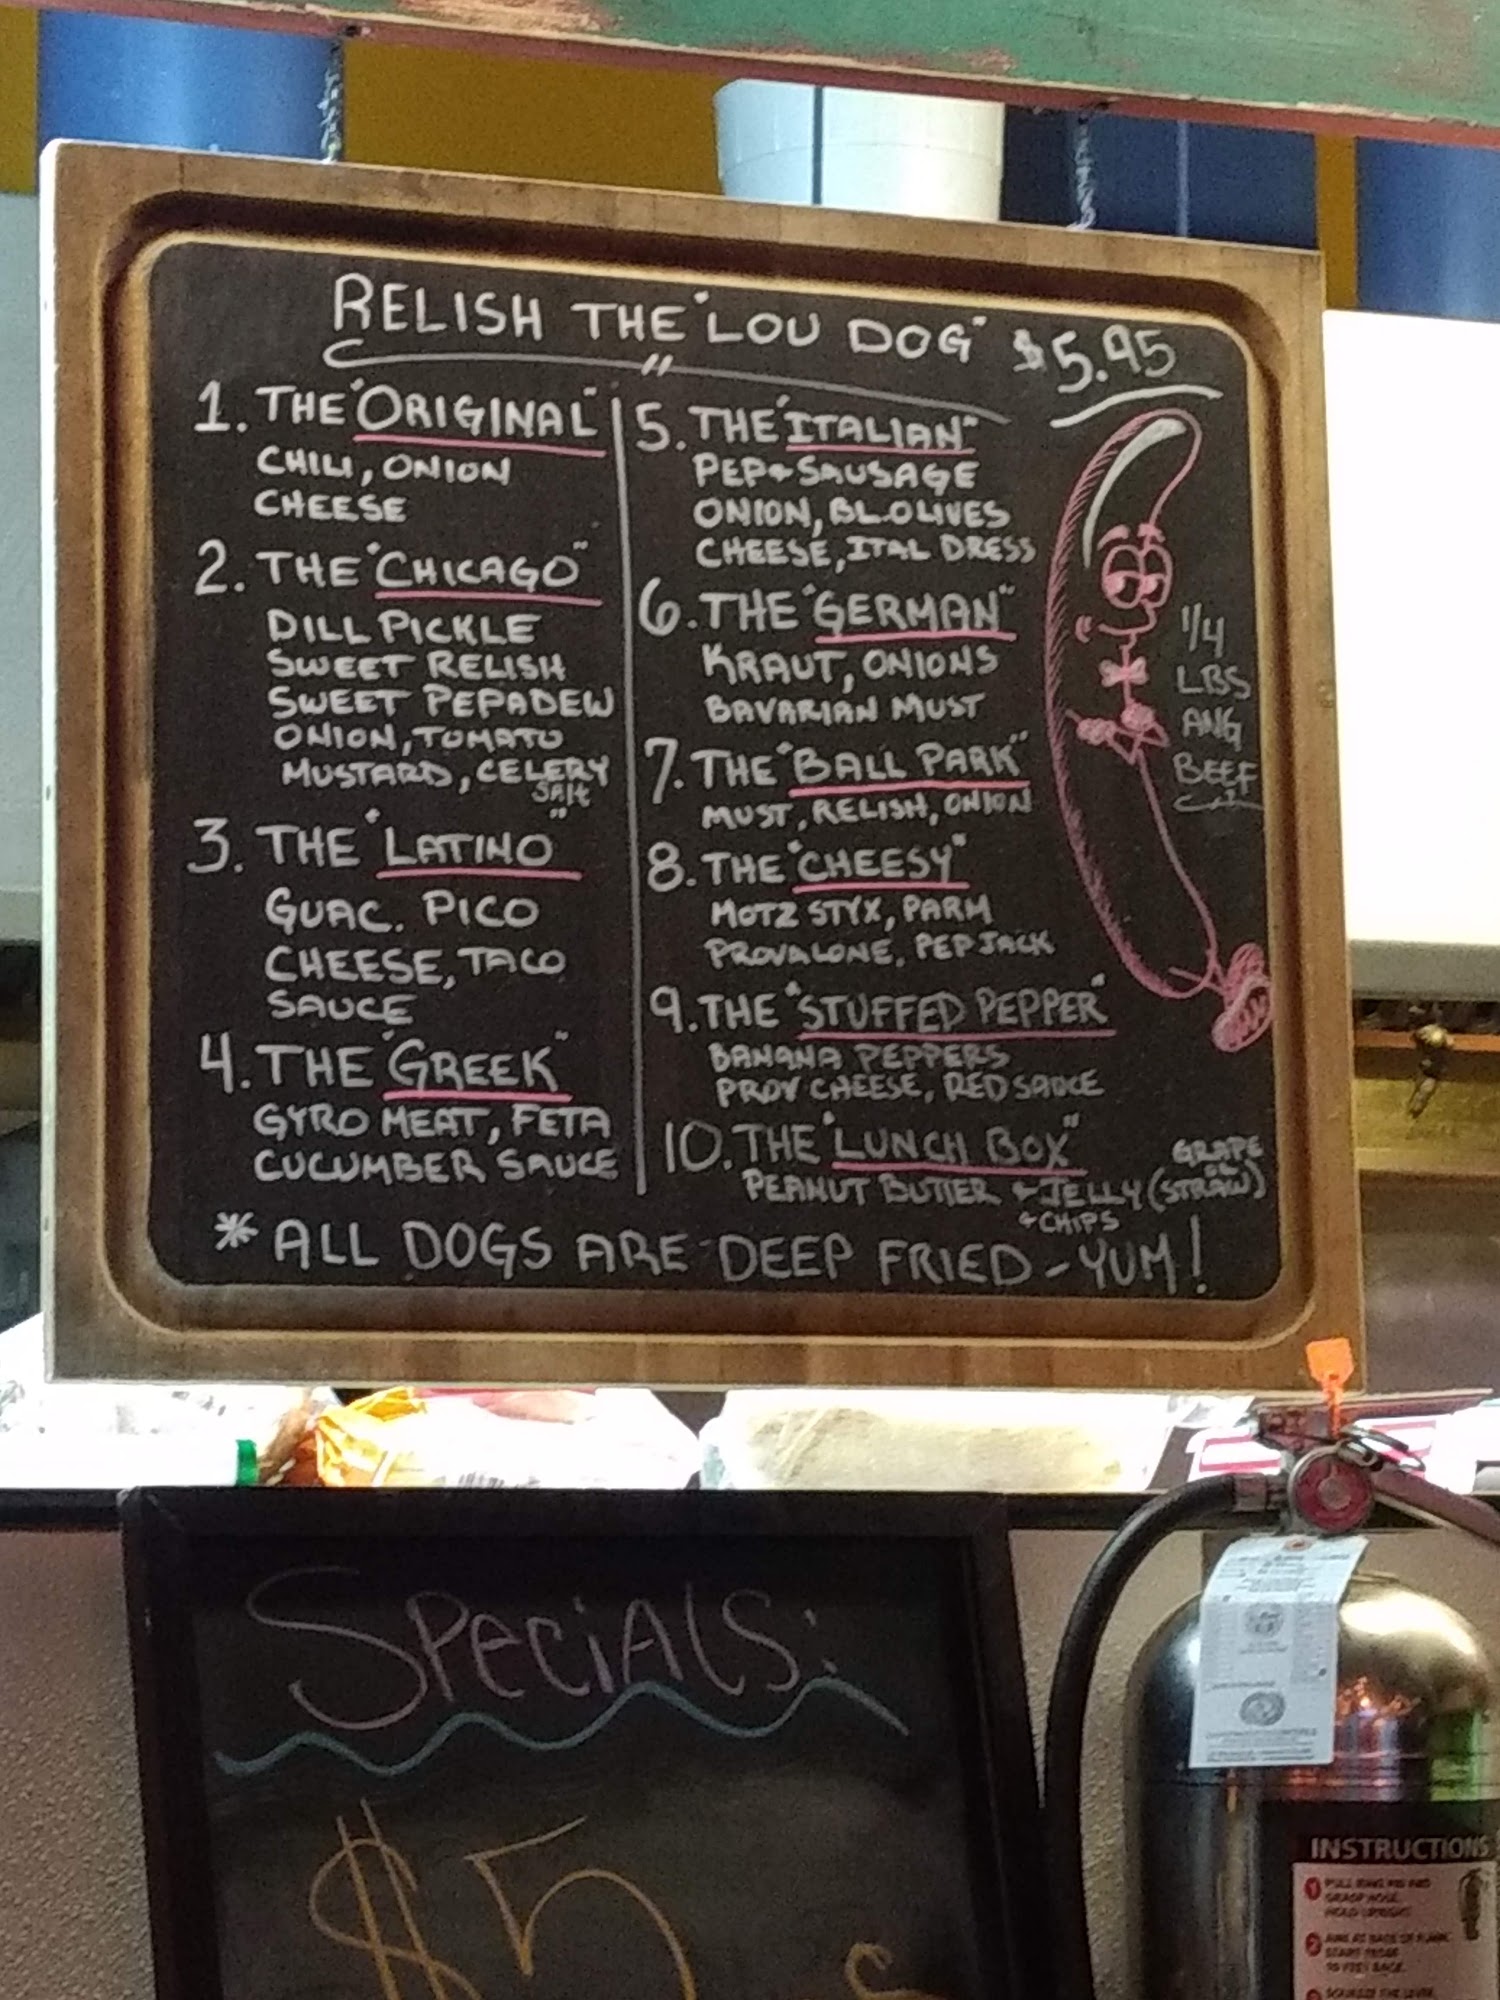 RELISH THE "LOU DOG" $5.95
1. THE "ORIGINAL"
CHILI, ONION
CHEESE
2. THE "CHICAGO"
DILL PICKLE
SWEET RELISH
SWEET PEPADEW
ONION, TOMATO
MUSTARD, CELERY
SALT
3. THE "LATINO"
GUAC. PICO
CHEESE, TACO
SAUCE
4. THE "GREEK"
GYRO MEAT, FETA
CUCUMBER SAUCE
5. THE "ITALIAN"
PEP & SAUSAGE
ONION, BL.OLIVES
CHEESE, ITAL DRESS
6. THE "GERMAN"
KRAUT, ONIONS
BAVARIAN MUST
7. THE "BALL PARK"
MUST, RELISH, ONION
8. THE "CHEESY"
MOTZ STYX, PARM
PROVALONE, PEP JACK
9. THE "STUFFED PEPPER"
BANANA PEPPERS
PROV CHEESE, RED SAUCE
10. THE "LUNCH BOX"
PEANUT BUTTER & JELLY (GRAPE
OR
STRAW)
& CHIPS
1/4
LBS
ANG
BEEF
* ALL DOGS ARE DEEP FRIED - YUM!
Specials:
$5
INSTRUCTIONS
1 PULL RING PIN AND
GRASP HOSE.
HOLD UPRIGHT.
2 AIM AT BASE OF FLAME.
START FROM
10 FEET BACK.
SQUEEZE THE LEVER